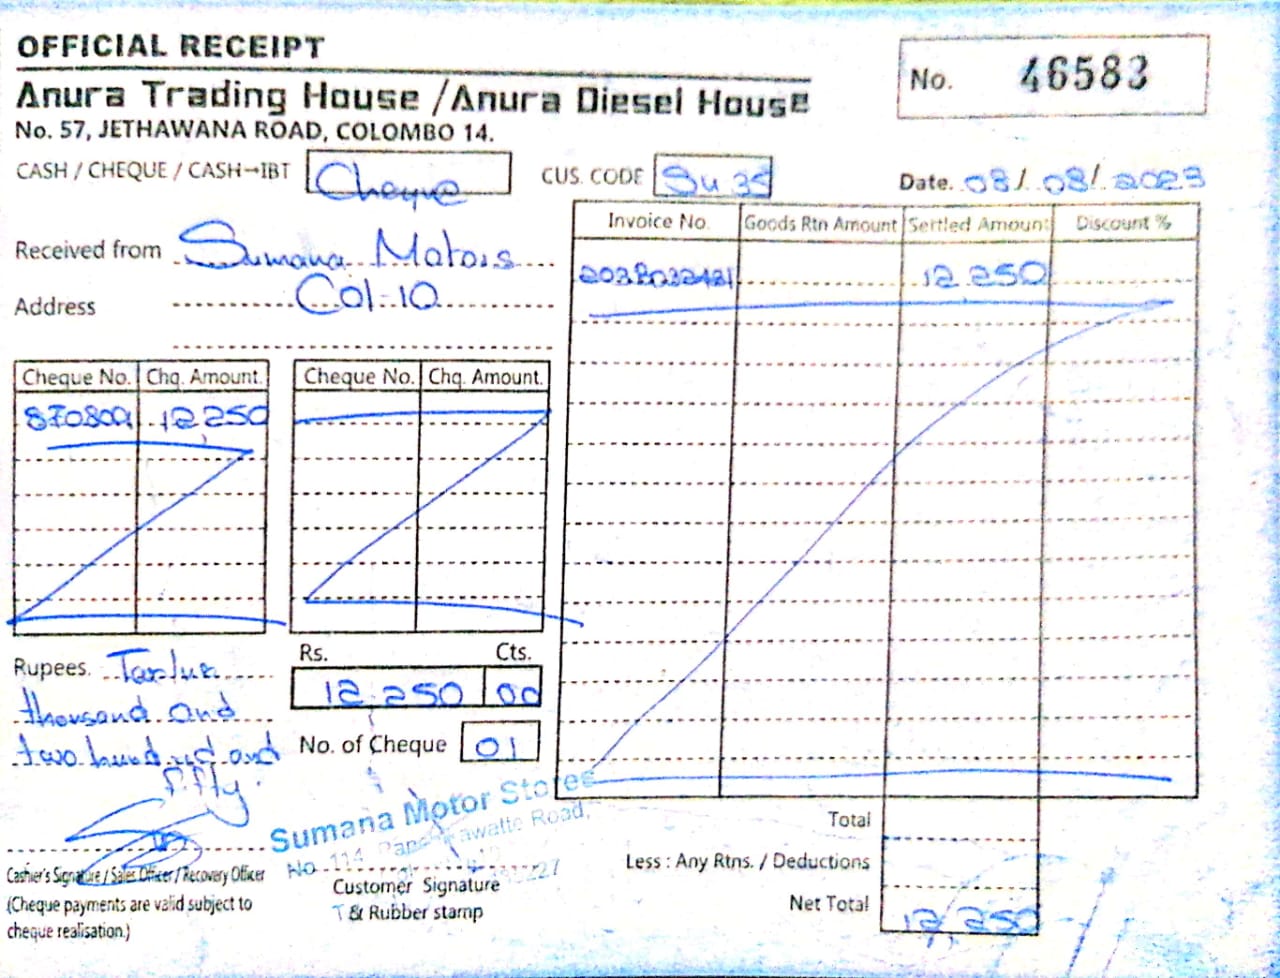 OFFICIAL RECEIPT
No. 46583
Anura Trading House / Anura Diesel House
No. 57, JETHAWANA ROAD, COLOMBO 14.
CASH / CHEQUE / CASH→IBT Cheque CUS. CODE Su 35 Date. 08/ 08/ 2023
Received from Sumana Motors
Address Col-10
Invoice No. Goods Rtn Amount Settled Amount Discount %
12 250
Cheque No. Chq. Amount. Cheque No. Chq. Amount.
870809 12,250
Rupees. thousand and two hundred and fifty.
Rs. Cts.
12 250 00
No. of Cheque 01
Sumana Motor Stores
No. 114, Road,
Total
Less : Any Rtns. / Deductions
Net Total 12,250
Cashier's Signature / Sales Officer / Recovery Officer
(Cheque payments are valid subject to
cheque realisation.)
Customer Signature
& Rubber stamp